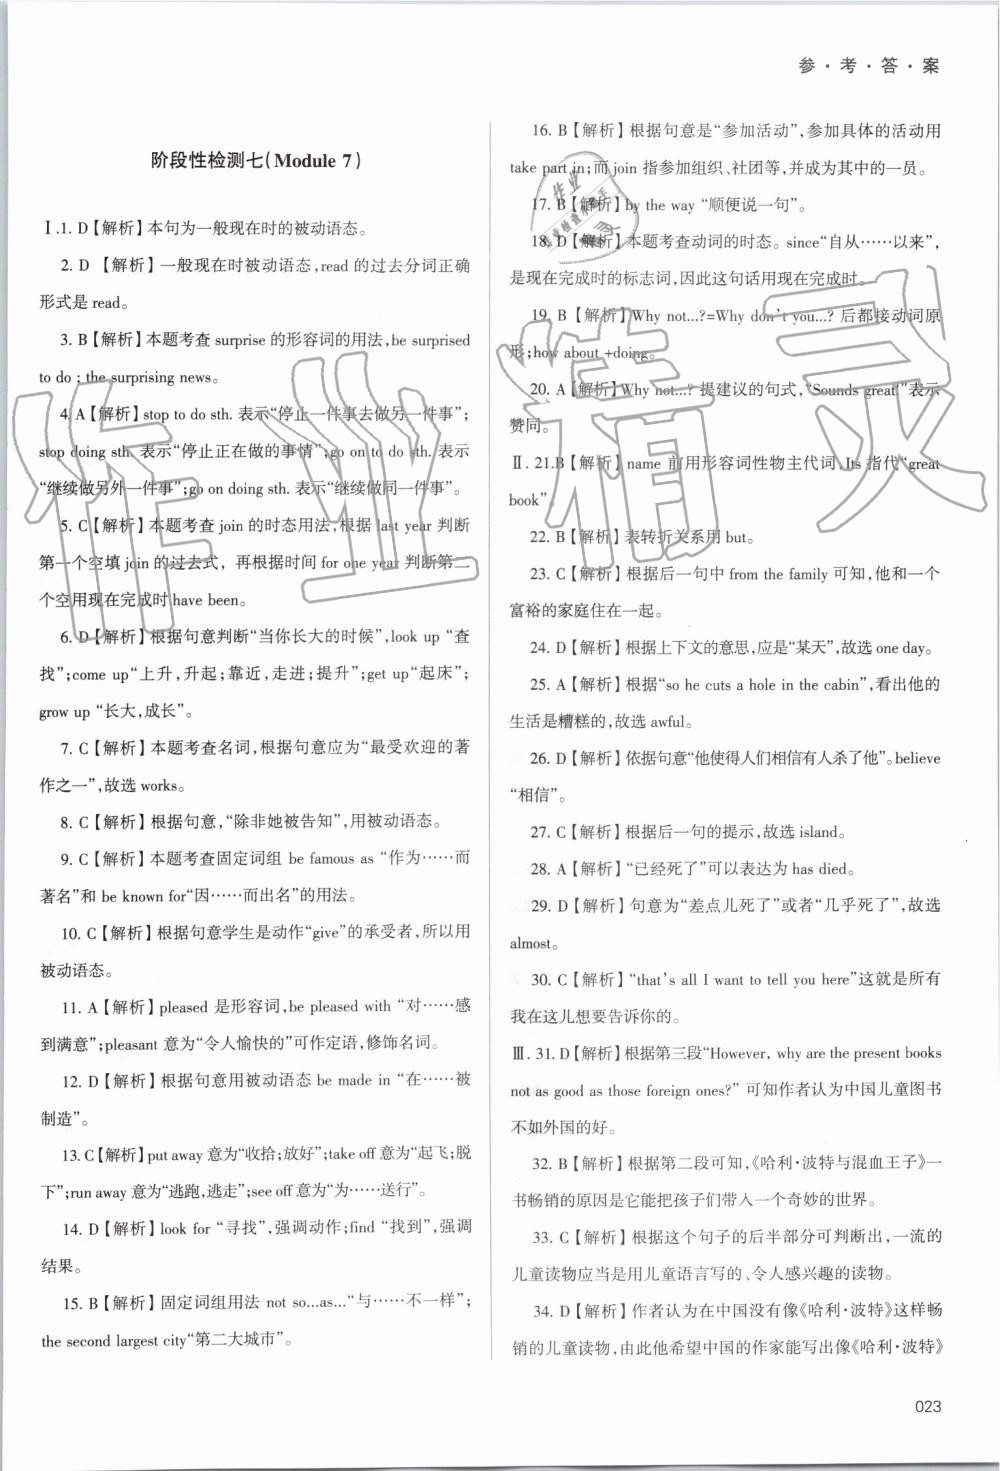 参·考·答·案
阶段性检测七(Module 7)
Ⅰ.1. D【解析】本句为一般现在时的被动语态。
2. D 【解析】一般现在时被动语态,read 的过去分词正确
形式是 read。
3. B【解析】本题考查 surprise 的形容词的用法,be surprised
to do ; the surprising news。
4. A【解析】stop to do sth. 表示“停止一件事去做另一件事”;
stop doing sth. 表示“停止正在做的事情”;go on to do sth. 表示
“继续做另外一件事”;go on doing sth. 表示“继续做同一件事”。
5. C【解析】本题考查 join 的时态用法,根据 last year 判断
第一个空填 join 的过去式, 再根据时间 for one year 判断第二
个空用现在完成时 have been。
6. D【解析】根据句意判断“当你长大的时候”,look up “查
找”;come up“上升,升起;靠近,走进;提升”;get up“起床”;
grow up “长大,成长”。
7. C【解析】本题考查名词,根据句意应为“最受欢迎的著
作之一”,故选 works。
8. C【解析】根据句意,“除非她被告知”,用被动语态。
9. C【解析】本题考查固定词组 be famous as “作为……而
著名”和 be known for“因……而出名”的用法。
10. C【解析】根据句意学生是动作“give”的承受者,所以用
被动语态。
11. A【解析】pleased 是形容词,be pleased with “对……感
到满意”;pleasant 意为“令人愉快的”可作定语,修饰名词。
12. D【解析】根据句意用被动语态 be made in “在……被
制造”。
13. C【解析】put away 意为“收拾;放好”;take off 意为“起飞;脱
下”;run away 意为“逃跑,逃走”;see off 意为“为……送行”。
14. D【解析】look for “寻找”,强调动作;find “找到”,强调
结果。
15. B【解析】固定词组用法 not so...as...“与……不一样”;
the second largest city“第二大城市”。
16. B【解析】根据句意是“参加活动”,参加具体的活动用
take part in;而 join 指参加组织、社团等,并成为其中的一员。
17. B【解析】by the way “顺便说一句”。
18. D【解析】本题考查动词的时态。since“自从……以来”,
是现在完成时的标志词,因此这句话用现在完成时。
19. B【解析】Why not...?=Why don't you...? 后都接动词原
形;how about +doing。
20. A【解析】Why not...? 提建议的句式,“Sounds great!”表示
赞同。
Ⅱ. 21.B【解析】name 前用形容词性物主代词,Its 指代“great
book”。
22. B【解析】表转折关系用 but。
23. C【解析】根据后一句中 from the family 可知,他和一个
富裕的家庭住在一起。
24. D【解析】根据上下文的意思,应是“某天”,故选 one day。
25. A【解析】根据“so he cuts a hole in the cabin”,看出他的
生活是糟糕的,故选 awful。
26. D【解析】依据句意“他使得人们相信有人杀了他”。believe
“相信”。
27. C【解析】根据后一句的提示,故选 island。
28. A【解析】“已经死了”可以表达为 has died。
29. D【解析】句意为“差点儿死了”或者“几乎死了”,故选
almost。
30. C【解析】“that's all I want to tell you here”这就是所有
我在这儿想要告诉你的。
Ⅲ. 31. D【解析】根据第三段“However, why are the present books
not as good as those foreign ones?” 可知作者认为中国儿童图书
不如外国的好。
32. B【解析】根据第二段可知,《哈利·波特与混血王子》一
书畅销的原因是它能把孩子们带入一个奇妙的世界。
33. C【解析】根据这个句子的后半部分可判断出,一流的
儿童读物应当是用儿童语言写的、令人感兴趣的读物。
34. D【解析】作者认为在中国没有像《哈利·波特》这样畅
销的儿童读物,由此他希望中国的作家能写出像《哈利·波特》
023
作业精灵